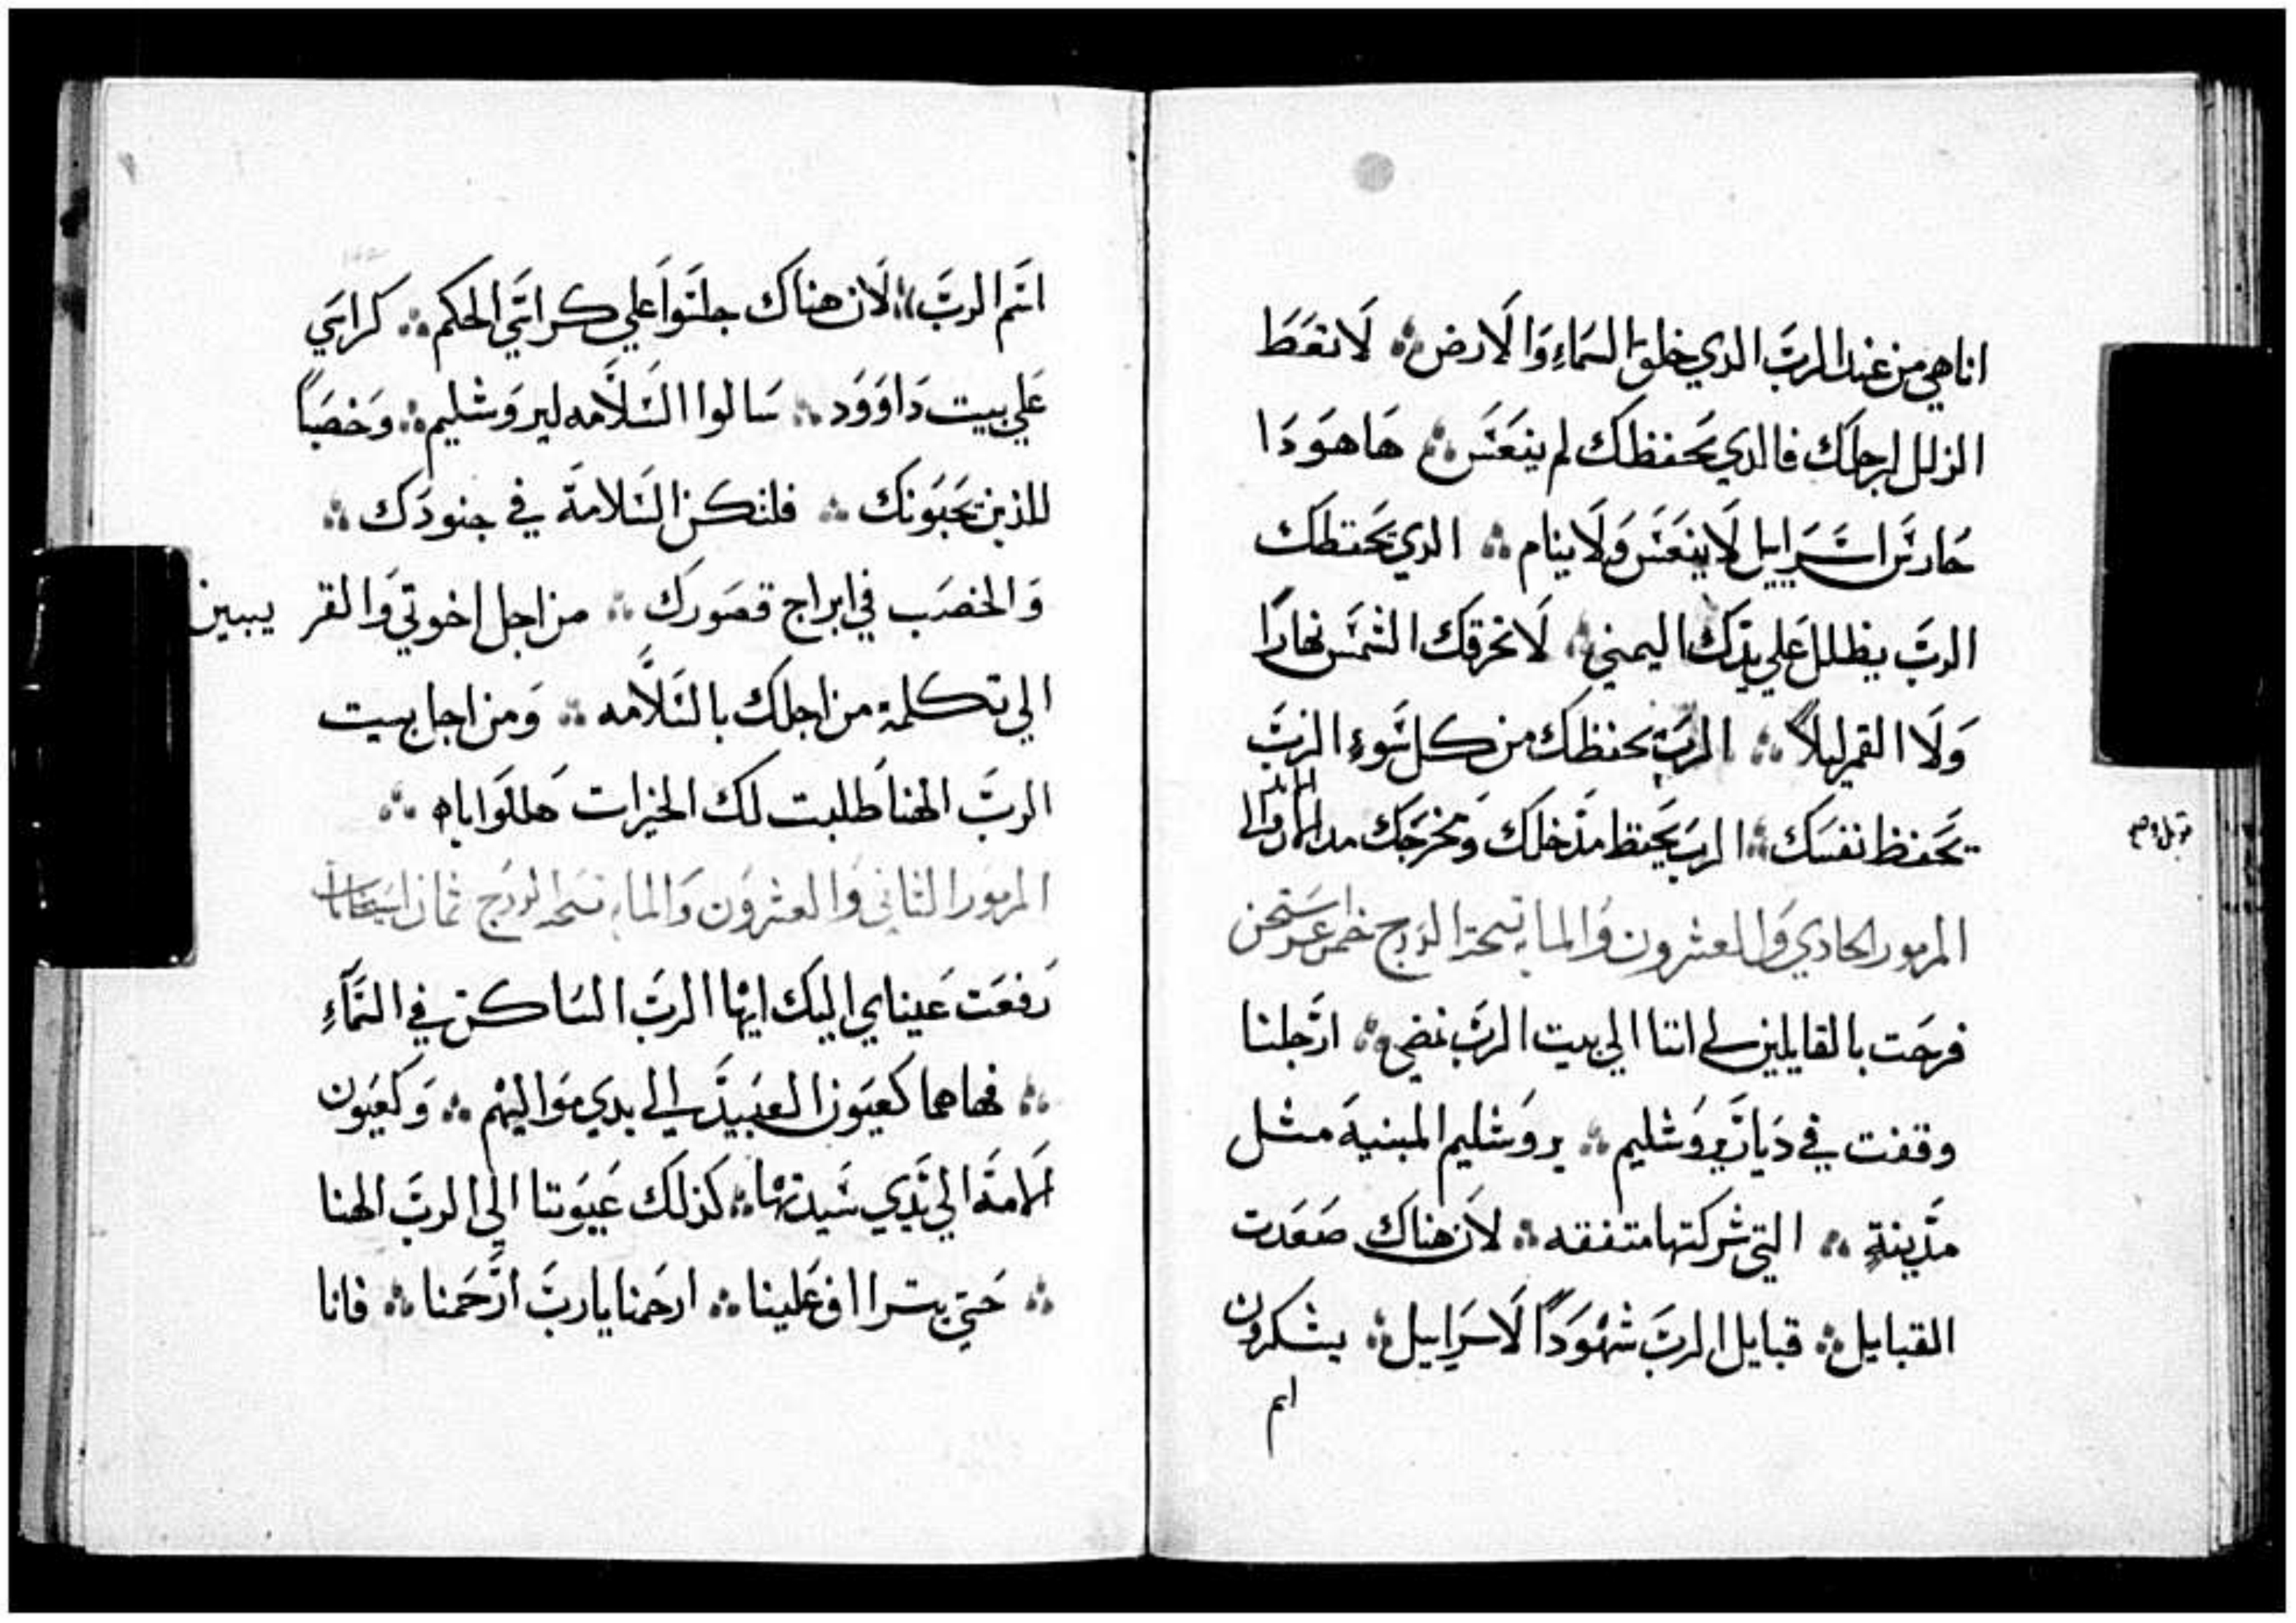 اناهي من عند الرب الدي خلق السماء والارض ؞ لا تعط
الزلل لرجلك فالدي يحفظك لم ينعس ؞ ها هودا
حارس اسراييل لا ينعس ولا ينام ؞ الدي يحفظك
الرب يظلل علي يدك اليمني ؞ لا تحرقك الشمس نهارا
ولا القمر ليلا ؞ الرب يحفظك من كل سوء الرب
يحفظ نفسك ؞ الرب يحفظ مدخلك ومخرجك
المزمور الحادي والعشرون والمايه تسبحة الدرج خمس عشر
فرحت بالقايلين لي اننا الي بيت الرب نمضي ؞ ارجلنا
وقفت في ديار يروشليم ؞ يروشليم المبنية مثل
مدينة ؞ التي شركتها متفقه ؞ لان هناك صعدت
القبايل ؞ قبايل الرب شهودا لاسراييل ؞ يشكرون
اسم
اسم الرب ؞ لان هناك جلسوا علي كراسي الحكم ؞ كراسي
علي بيت داوود ؞ سالوا السلامه ليروشليم ؞ وخصبا
للذين يحبونك ؞ فلتكن السلامة في جنودك ؞
والخصب في ابراج قصورك ؞ من اجل اخوتي والقر يبين
الي تكلمة من اجلك بالسلامه ؞ ومن اجل بيت
الرب الهنا طلبت لك الخيرات هللوا ياه ؞
المزمور الثاني والعشرون والمايه تسبحة الدرج ثمان استيخنات
رفعت عيناي اليك ايها الرب الساكن في السماء
؞ فها هما كعيون العبيد الي ايدي مواليهم ؞ وكعيون
الامة الي يدي سيدتها ؞ كذلك عيوننا الي الرب الهنا
؞ حتي يتراا ف علينا ؞ ارحمنا يا رب ارحمنا ؞ فانا